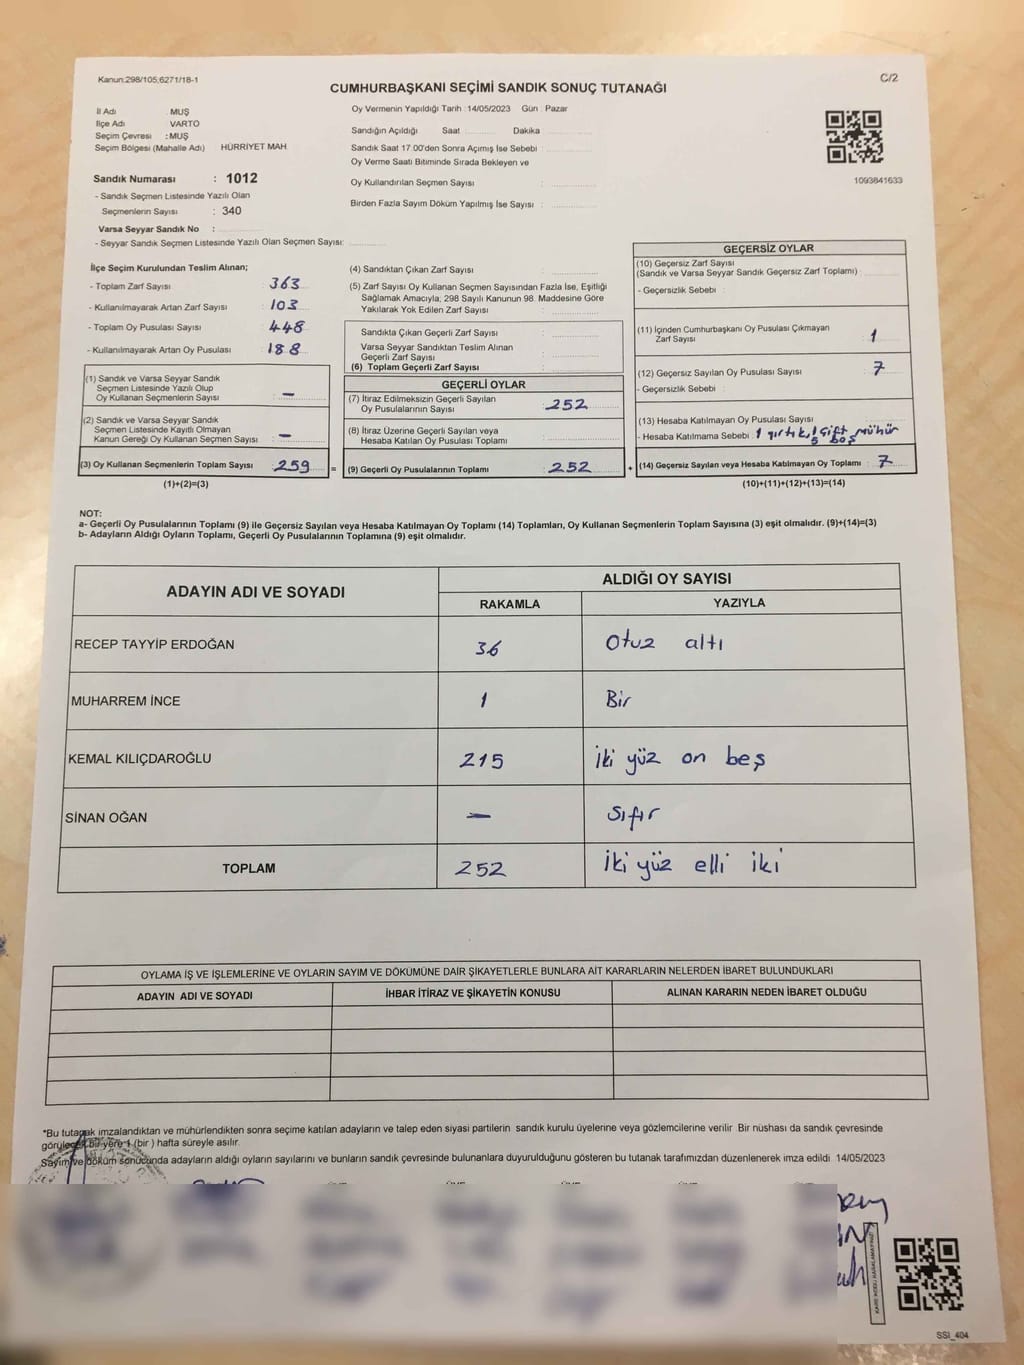 Kanun:298/105;6271/18-1
C/2
CUMHURBAŞKANI SEÇİMİ SANDIK SONUÇ TUTANAĞI
İl Adı : MUŞ
İlçe Adı : VARTO
Seçim Çevresi : MUŞ
Seçim Bölgesi (Mahalle Adı) : HÜRRİYET MAH
Sandık Numarası : 1012
- Sandık Seçmen Listesinde Yazılı Olan
Seçmenlerin Sayısı : 340
Varsa Seyyar Sandık No :
- Seyyar Sandık Seçmen Listesinde Yazılı Olan Seçmen Sayısı:
Oy Vermenin Yapıldığı Tarih : 14/05/2023 Gün : Pazar
Sandığın Açıldığı Saat Dakika
Sandık Saat 17.00'den Sonra Açımış İse Sebebi :
Oy Verme Saati Bitiminde Sırada Bekleyen ve
Oy Kullandırılan Seçmen Sayısı :
Birden Fazla Sayım Döküm Yapılmış İse Sayısı :
1093841633
İlçe Seçim Kurulundan Teslim Alınan;
- Toplam Zarf Sayısı : 363
- Kullanılmayarak Artan Zarf Sayısı : 103
- Toplam Oy Pusulası Sayısı : 448
- Kullanılmayarak Artan Oy Pusulası : 188
(1) Sandık ve Varsa Seyyar Sandık
Seçmen Listesinde Yazılı Olup
Oy Kullanan Seçmenlerin Sayısı : –
(2) Sandık ve Varsa Seyyar Sandık
Seçmen Listesinde Kayıtlı Olmayan
Kanun Gereği Oy Kullanan Seçmen Sayısı : –
(3) Oy Kullanan Seçmenlerin Toplam Sayısı : 259 =
(1)+(2)=(3)
(4) Sandıktan Çıkan Zarf Sayısı :
(5) Zarf Sayısı Oy Kullanan Seçmen Sayısından Fazla İse, Eşitliği
Sağlamak Amacıyla; 298 Sayılı Kanunun 98. Maddesine Göre
Yakılarak Yok Edilen Zarf Sayısı :
Sandıkta Çıkan Geçerli Zarf Sayısı :
Varsa Seyyar Sandıktan Teslim Alınan
Geçerli Zarf Sayısı :
(6) Toplam Geçerli Zarf Sayısı :
GEÇERLİ OYLAR
(7) İtiraz Edilmeksizin Geçerli Sayılan
Oy Pusulalarının Sayısı : 252
(8) İtiraz Üzerine Geçerli Sayılan veya
Hesaba Katılan Oy Pusulası Toplamı :
(9) Geçerli Oy Pusulalarının Toplamı : 252 +
GEÇERSİZ OYLAR
(10) Geçersiz Zarf Sayısı
(Sandık ve Varsa Seyyar Sandık Geçersiz Zarf Toplamı)
- Geçersizlik Sebebi :
(11) İçinden Cumhurbaşkanı Oy Pusulası Çıkmayan
Zarf Sayısı : 1
(12) Geçersiz Sayılan Oy Pusulası Sayısı : 7
- Geçersizlik Sebebi :
(13) Hesaba Katılmayan Oy Pusulası Sayısı :
- Hesaba Katılmama Sebebi : 1 yırtık, 1 çift mühür
5 boş
(14) Geçersiz Sayılan veya Hesaba Katılmayan Oy Toplamı : 7
(10)+(11)+(12)+(13)=(14)
NOT:
a- Geçerli Oy Pusulalarının Toplamı (9) ile Geçersiz Sayılan veya Hesaba Katılmayan Oy Toplamı (14) Toplamları, Oy Kullanan Seçmenlerin Toplam Sayısına (3) eşit olmalıdır. (9)+(14)=(3)
b- Adayların Aldığı Oyların Toplamı, Geçerli Oy Pusulalarının Toplamına (9) eşit olmalıdır.
ADAYIN ADI VE SOYADI
ALDIĞI OY SAYISI
RAKAMLA YAZIYLA
RECEP TAYYİP ERDOĞAN 36 Otuz altı
MUHARREM İNCE 1 Bir
KEMAL KILIÇDAROĞLU 215 İki yüz on beş
SİNAN OĞAN – Sıfır
TOPLAM 252 İki yüz elli iki
OYLAMA İŞ VE İŞLEMLERİNE VE OYLARIN SAYIM VE DÖKÜMÜNE DAİR ŞİKAYETLERLE BUNLARA AİT KARARLARIN NELERDEN İBARET BULUNDUKLARI
ADAYIN ADI VE SOYADI İHBAR İTİRAZ VE ŞİKAYETİN KONUSU ALINAN KARARIN NEDEN İBARET OLDUĞU
*Bu tutanak imzalandıktan ve mühürlendikten sonra seçime katılan adayların ve talep eden siyasi partilerin sandık kurulu üyelerine veya gözlemcilerine verilir. Bir nüshası da sandık çevresinde
görülecek bir yere 1 (bir) hafta süreyle asılır.
Sayım ve döküm sonucunda adayların aldığı oyların sayılarını ve bunların sandık çevresinde bulunanlara duyurulduğunu gösteren bu tutanak tarafımızdan düzenlenerek imza edildi. 14/05/2023
SSİ_404